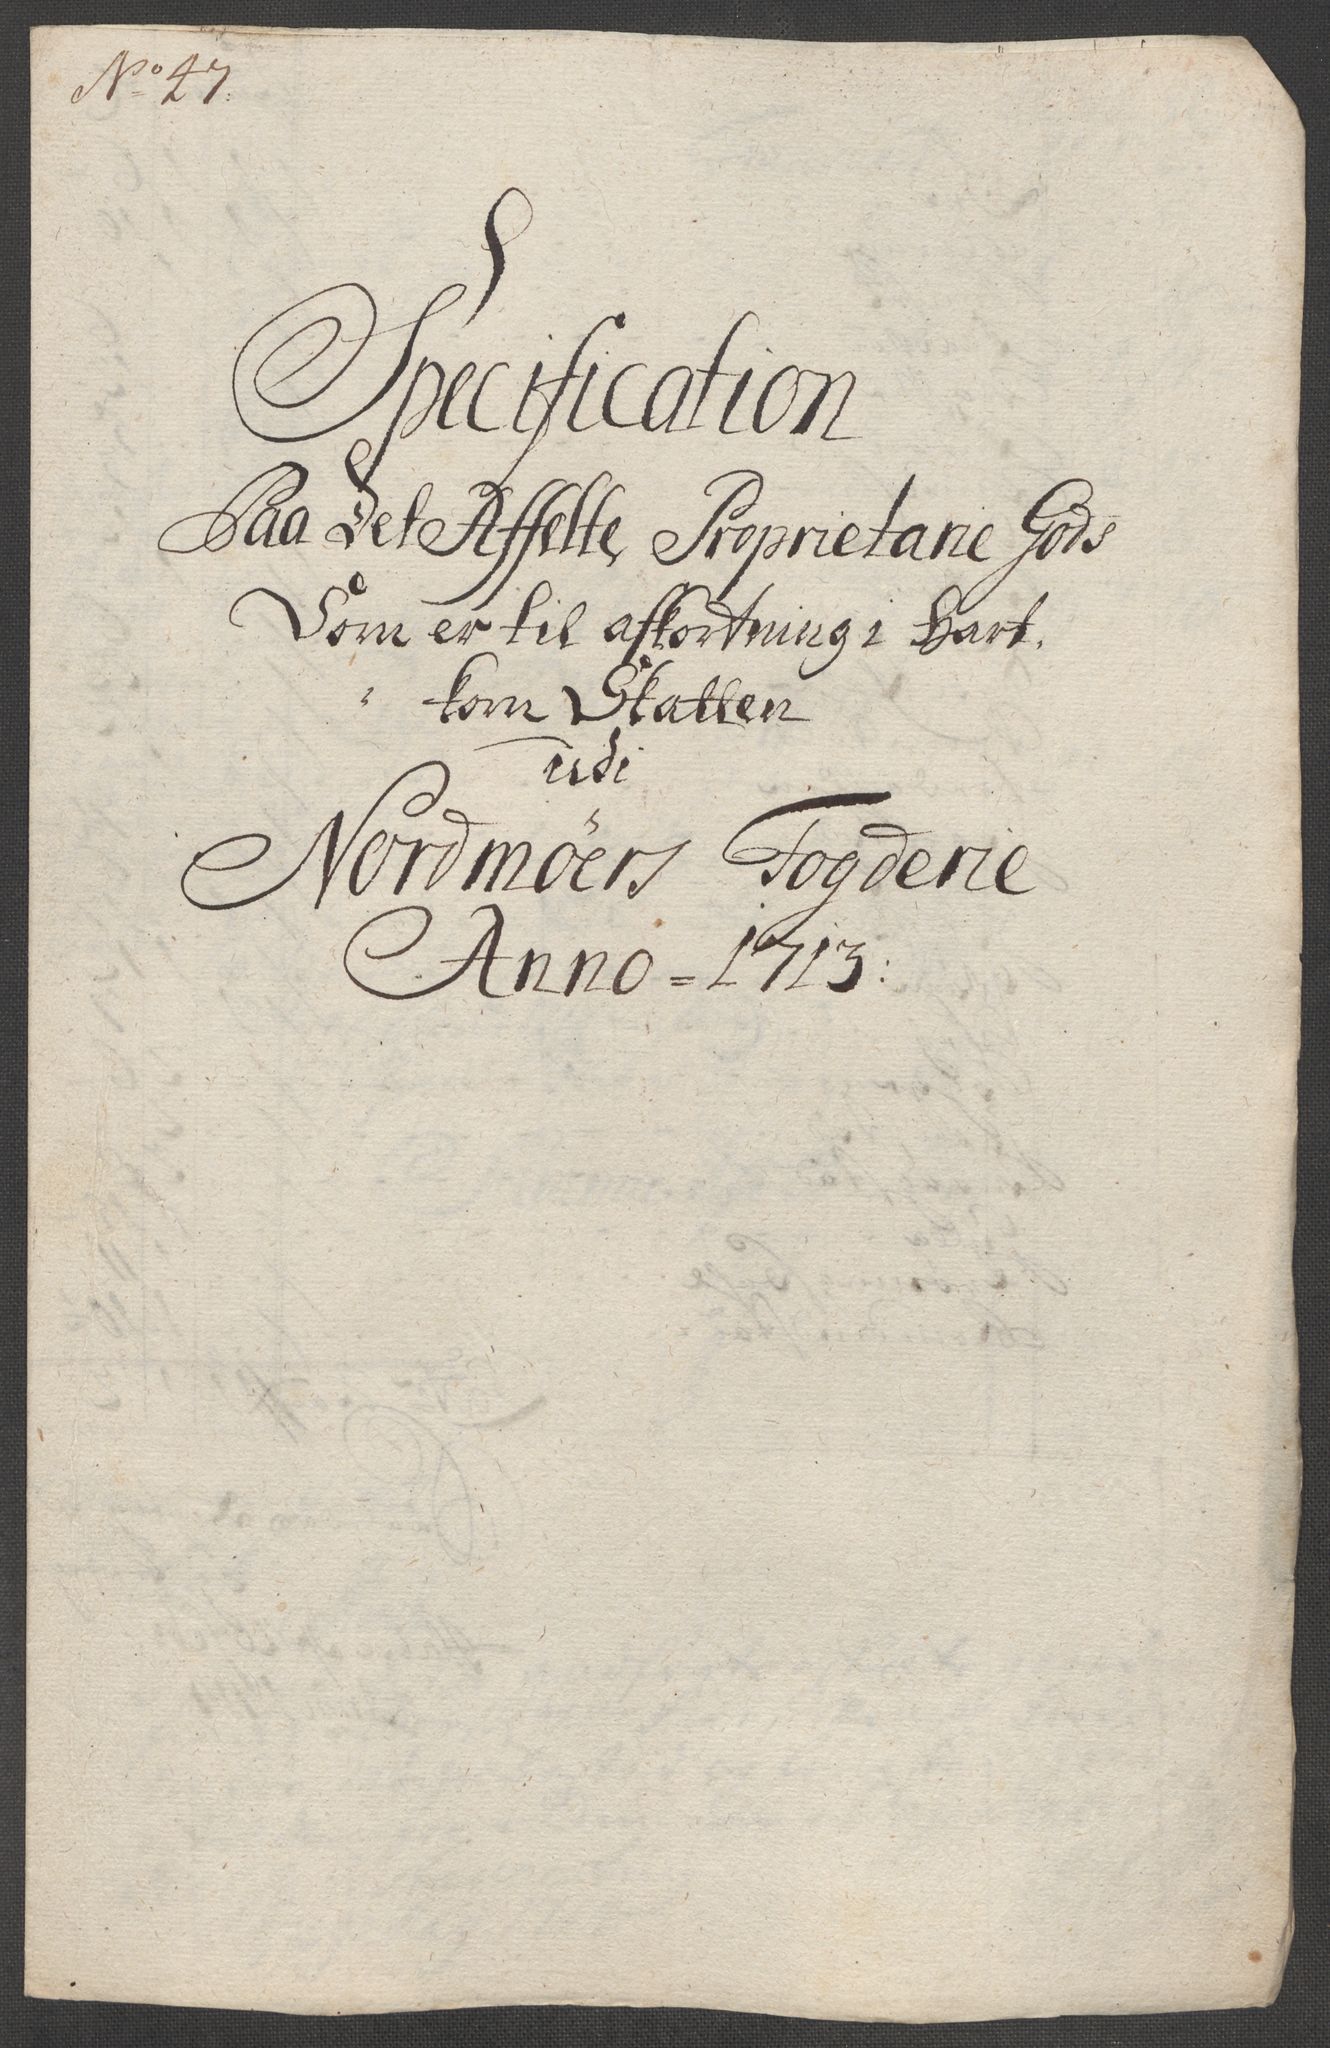 No 47.
Specification
Paa Det Affelte Proprietarie Gods
Som er til afkortning i Hart,
korn Skatten
udi
Nordmöers Fogderie
Anno = 1713: